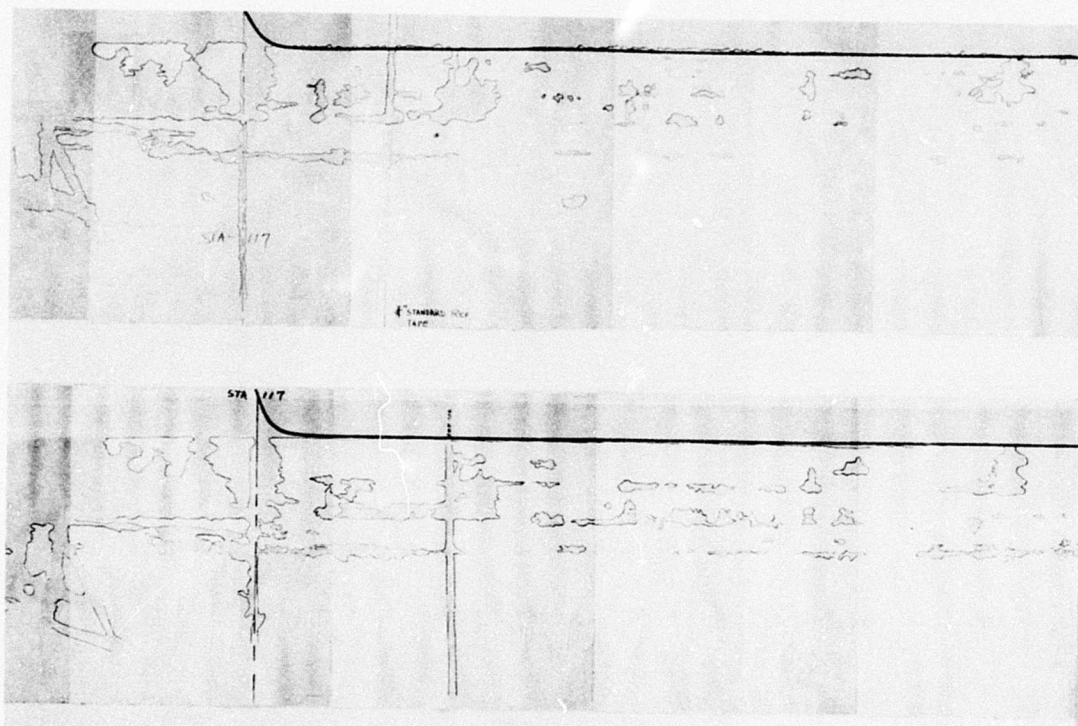 STA-117
STANDARD
TAPE
STA 117